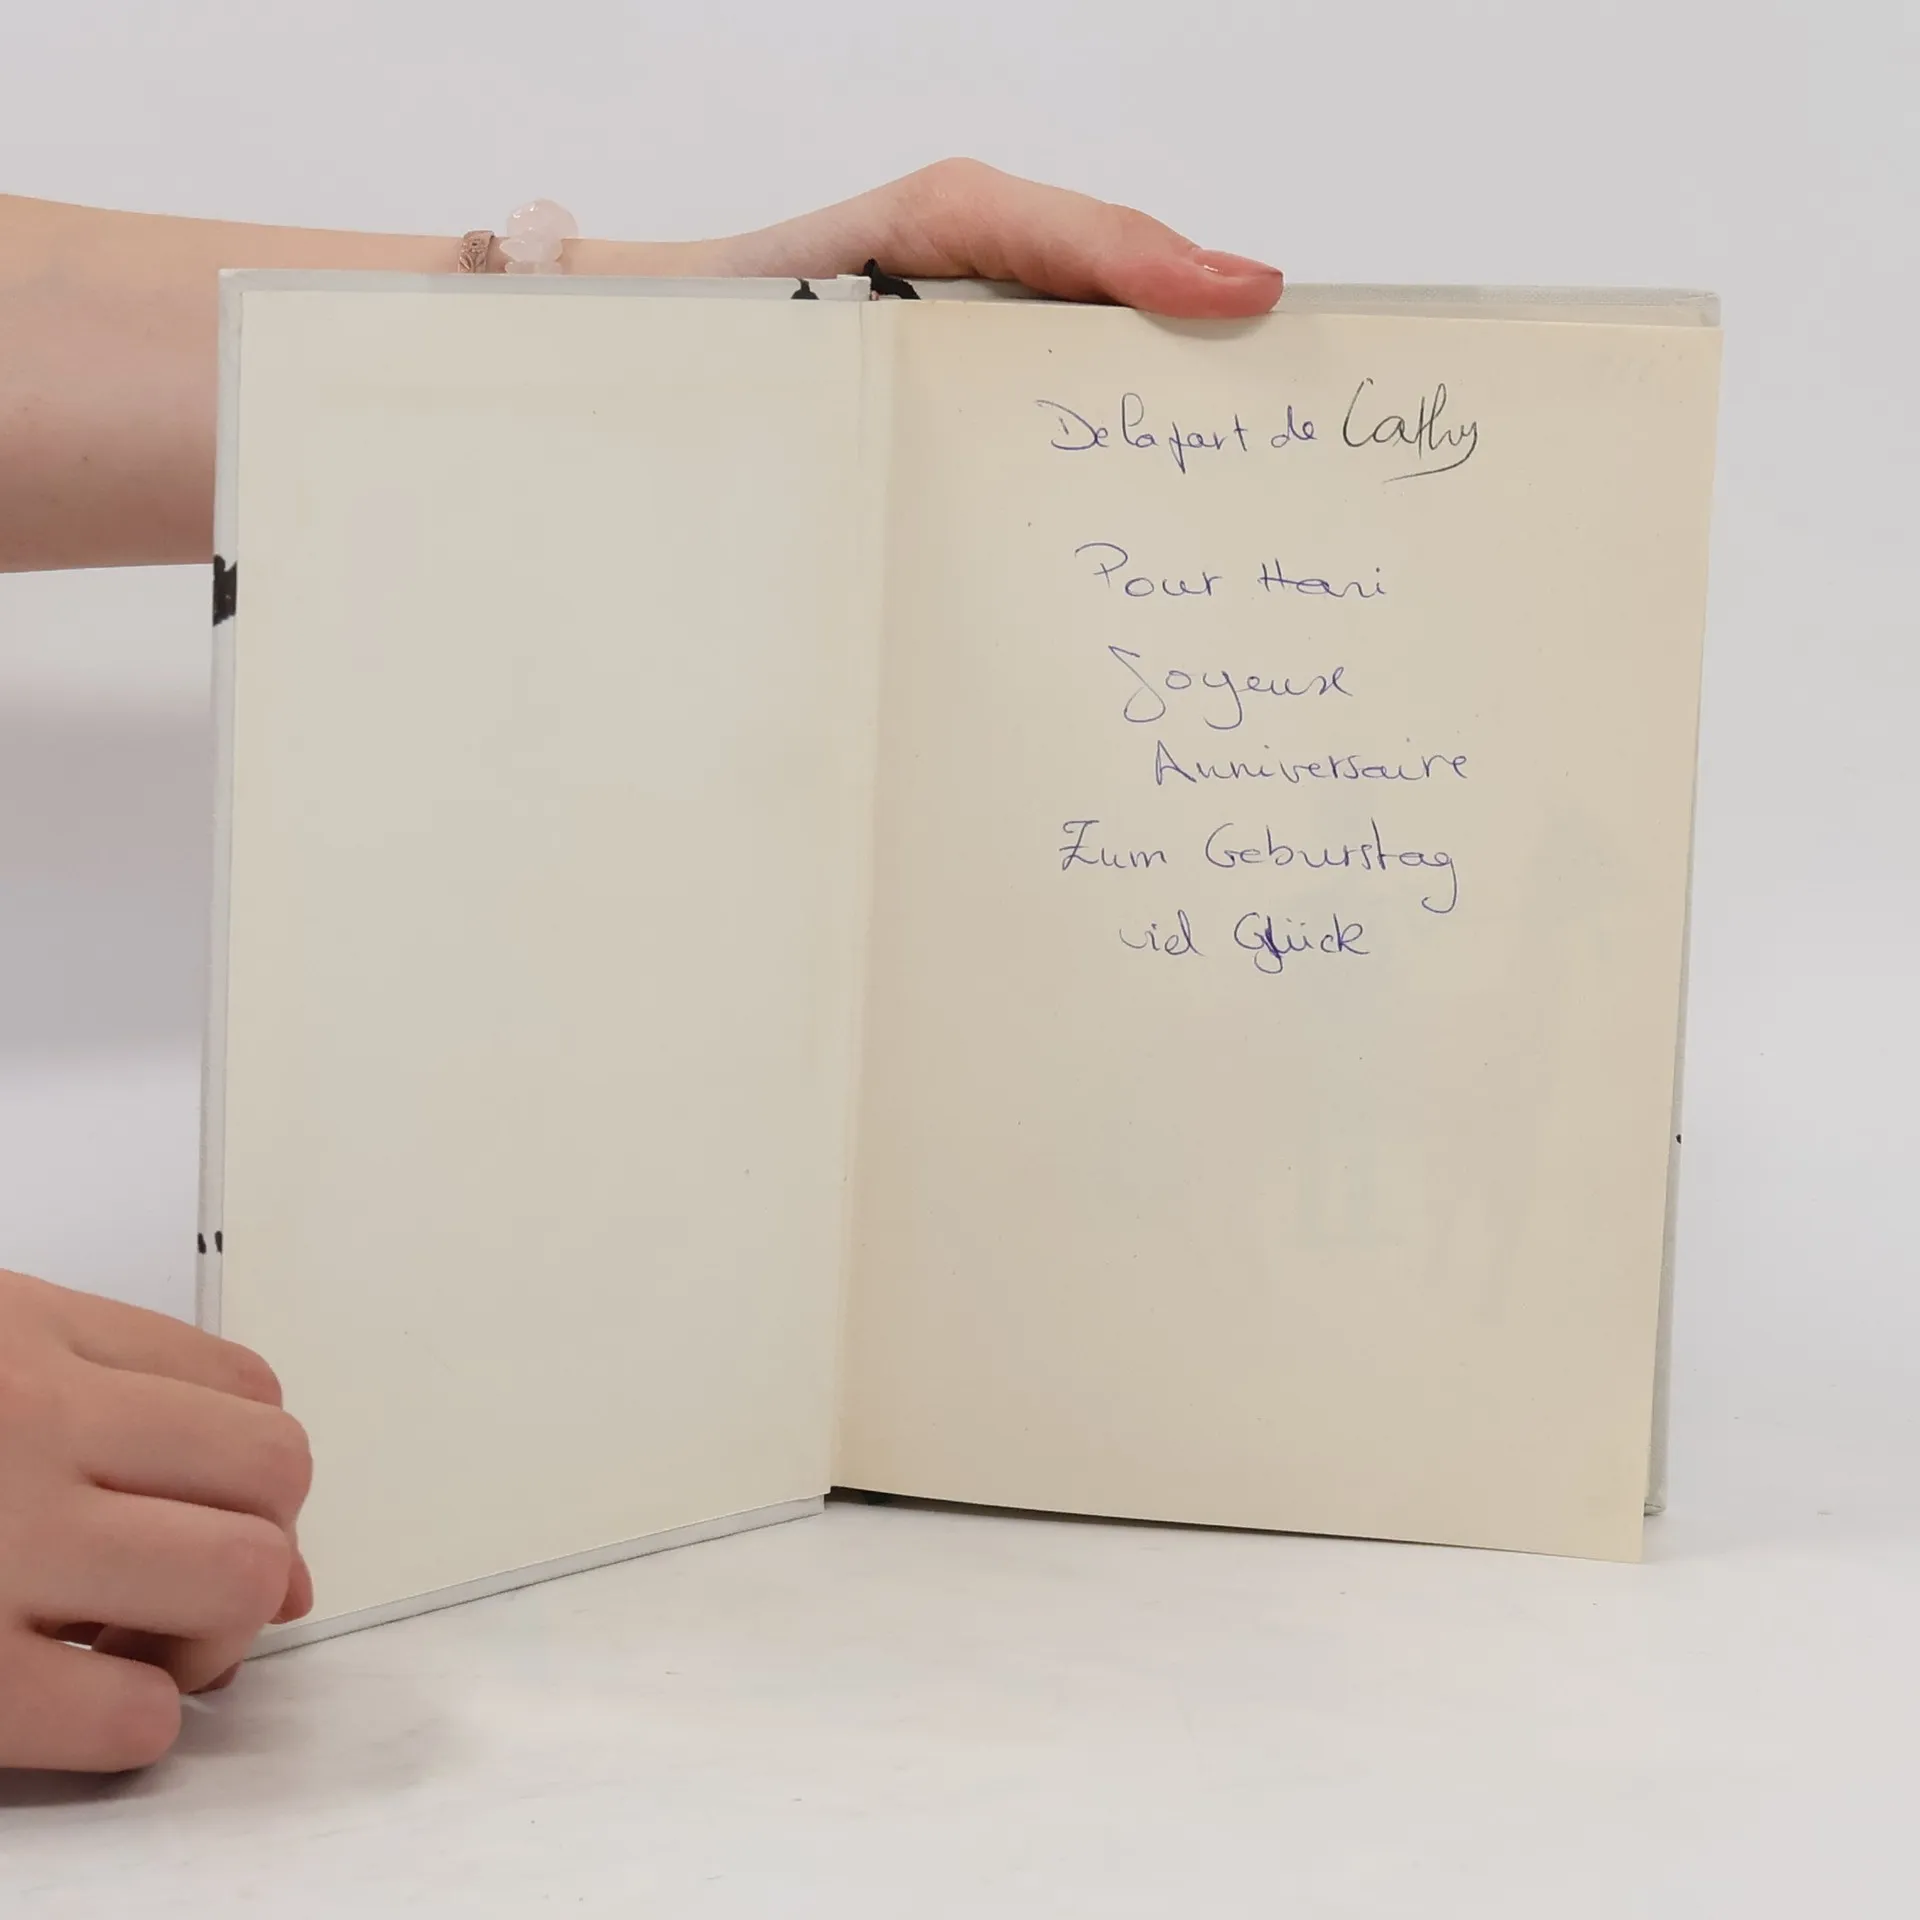 De la part de Cathy
Pour Hari
Joyeuse
Anniversaire
Zum Geburstag
viel Glück